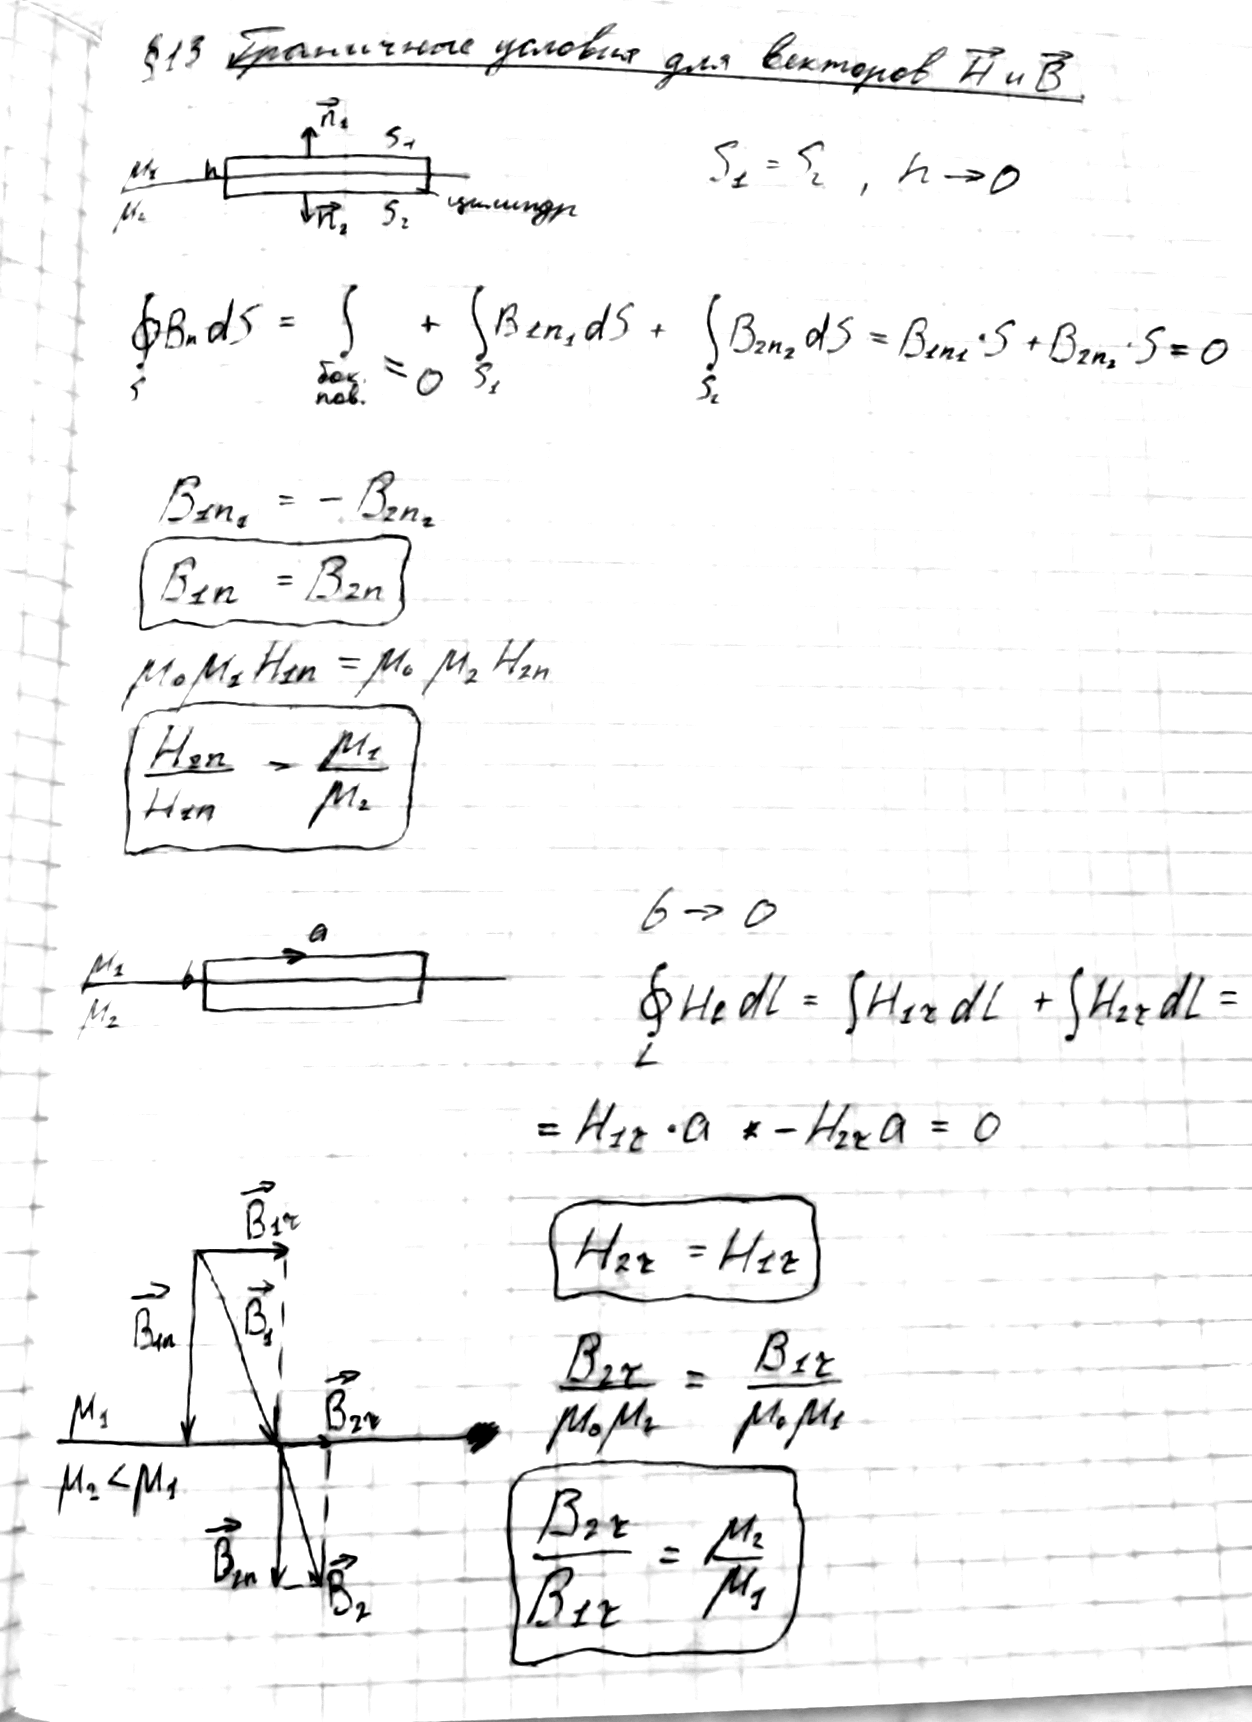 §13 Граничные условия для векторов H⃗ и B⃗.
n⃗₁ S₁
μ₁ h
μ₂ n⃗₂ S₂ цилиндр
S₁ = S₂ , h → 0
∮_S Bₙ dS = ∫_бок. пов. = 0 + ∫_S₁ B₁ₙ₁ dS + ∫_S₂ B₂ₙ₂ dS = B₁ₙ₁ · S + B₂ₙ₂ · S = 0
B₁ₙ₁ = − B₂ₙ₂
B₁ₙ = B₂ₙ
μ₀ μ₁ H₁ₙ = μ₀ μ₂ H₂ₙ
H₂ₙ / H₁ₙ = μ₁ / μ₂
a
μ₁ b
μ₂
b → 0
∮_L Hₗ dl = ∫ H₁τ dl + ∫ H₂τ dl =
= H₁τ · a − H₂τ a = 0
H₂τ = H₁τ
B₂τ / μ₀ μ₂ = B₁τ / μ₀ μ₁
B₂τ / B₁τ = μ₂ / μ₁
B⃗₁τ
B⃗₁ₙ B⃗₁
μ₁ B⃗₂τ
μ₂ < μ₁
B⃗₂ₙ B⃗₂